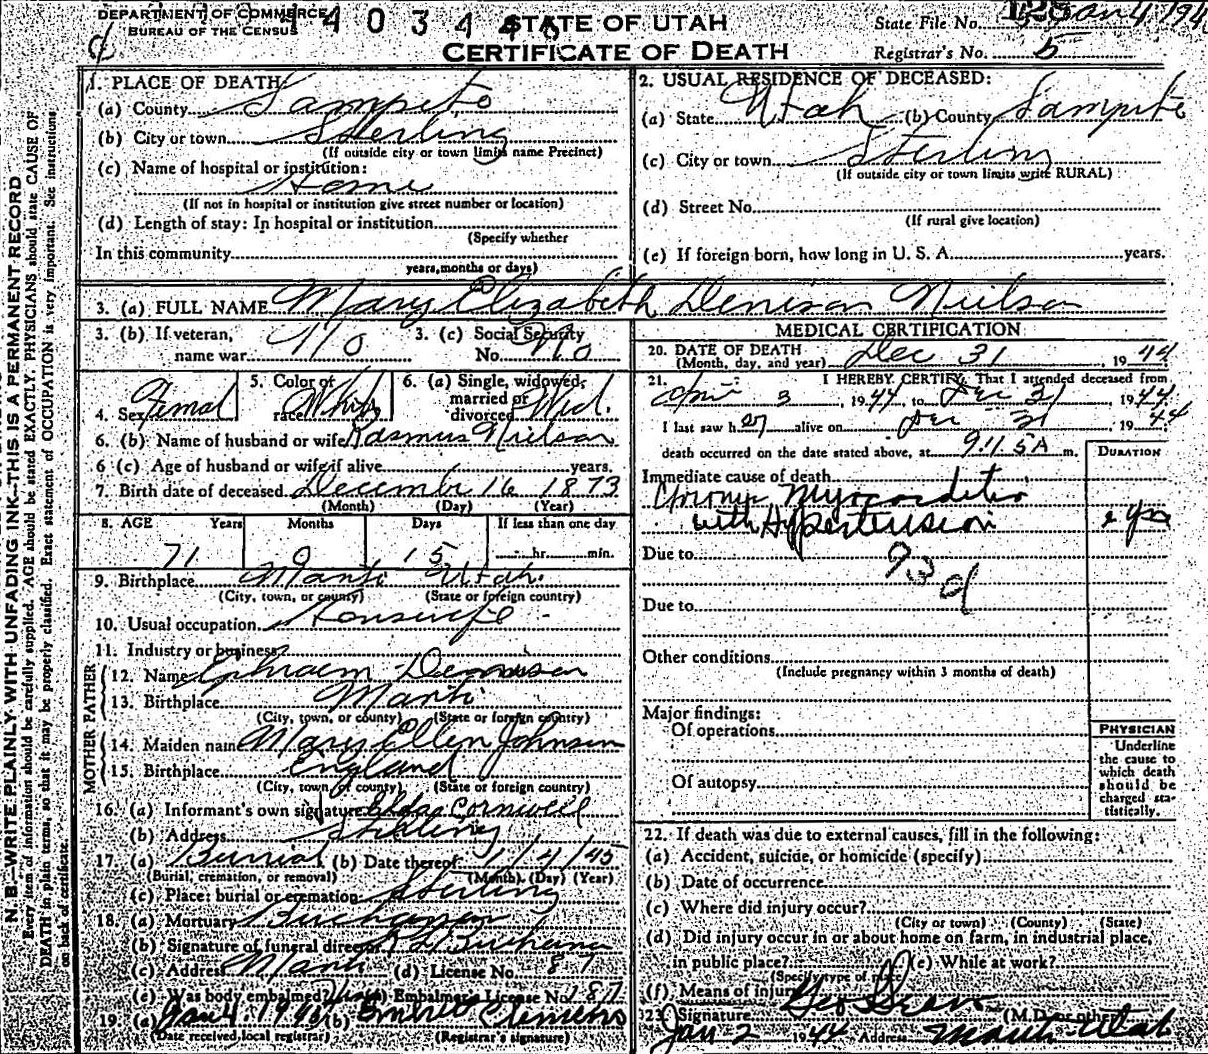 DEPARTMENT OF COMMERCE
BUREAU OF THE CENSUS
STATE OF UTAH
CERTIFICATE OF DEATH
State File No. Jan 4 194
Registrar's No. 5
N. B.—WRITE PLAINLY WITH UNFADING INK—THIS IS A PERMANENT RECORD
Every item of information should be carefully supplied. AGE should be stated EXACTLY. PHYSICIANS should state CAUSE OF
DEATH in plain terms, so that it may be properly classified. Exact statement of OCCUPATION is very important. See instructions
on back of certificate.
1. PLACE OF DEATH
(a) County Sanpete
(b) City or town Sterling
(If outside city or town limits name Precinct)
(c) Name of hospital or institution:
Home
(If not in hospital or institution give street number or location)
(d) Length of stay: In hospital or institution
(Specify whether
In this community
years, months or days)
2. USUAL RESIDENCE OF DECEASED:
(a) State Utah (b) County Sanpete
(c) City or town Sterling
(If outside city or town limits write RURAL)
(d) Street No.
(If rural give location)
(e) If foreign born, how long in U. S. A. years.
3. (a) FULL NAME Mary Elizabeth Denison Nielson
3. (b) If veteran,
name war No
3. (c) Social Security
No. No
4. Sex Femal
5. Color of
race White
6. (a) Single, widowed,
married or
divorced Wid.
6. (b) Name of husband or wife Rasmus Nielson
6 (c) Age of husband or wife if alive years.
7. Birth date of deceased December 16 1873
(Month) (Day) (Year)
8. AGE Years Months Days If less than one day
71 0 15 hr. min.
9. Birthplace Manti Utah.
(City, town, or county) (State or foreign country)
10. Usual occupation Housewife
11. Industry or business
FATHER
12. Name Ephraim Denison
13. Birthplace Manti
(City, town, or county) (State or foreign country)
MOTHER
14. Maiden name Mary Ellen Johnson
15. Birthplace England
(City, town or county) (State or foreign country)
16. (a) Informant's own signature Cornwell
(b) Address Sterling
17. (a) Burrial (b) Date thereof 1/4/45
(Burial, cremation, or removal) (Month) (Day) (Year)
(c) Place: burial or cremation Sterling
18. (a) Mortuary Buchanan
(b) Signature of funeral director Buchanan
(c) Address Manti (d) License No. 87
(e) Was body embalmed Embalmers License No. 187
19. (a) Jan 4. 1945 (b) Clemens
(Date received local registrar) (Registrar's signature)
MEDICAL CERTIFICATION
20. DATE OF DEATH
(Month, day, and year) Dec 31, 1944
21. I HEREBY CERTIFY, That I attended deceased from
April 3, 1944, to Dec 31, 1944
I last saw her alive on Dec 31, 1944
death occurred on the date stated above, at 9:15 A m.
DURATION
Immediate cause of death
Chronic Myocarditis
with Hypertension yrs
Due to 93d
Due to
Other conditions
(Include pregnancy within 3 months of death)
Major findings:
Of operations
Of autopsy
PHYSICIAN
Underline
the cause to
which death
should be
charged sta-
tistically.
22. If death was due to external causes, fill in the following:
(a) Accident, suicide, or homicide (specify)
(b) Date of occurrence
(c) Where did injury occur?
(City or town) (County) (State)
(d) Did injury occur in or about home on farm, in industrial place,
in public place? (e) While at work?
(Specify type of place)
(f) Means of injury
23. Signature Geo (M.D. or other)
Jan 2 1944 Address Manti Utah